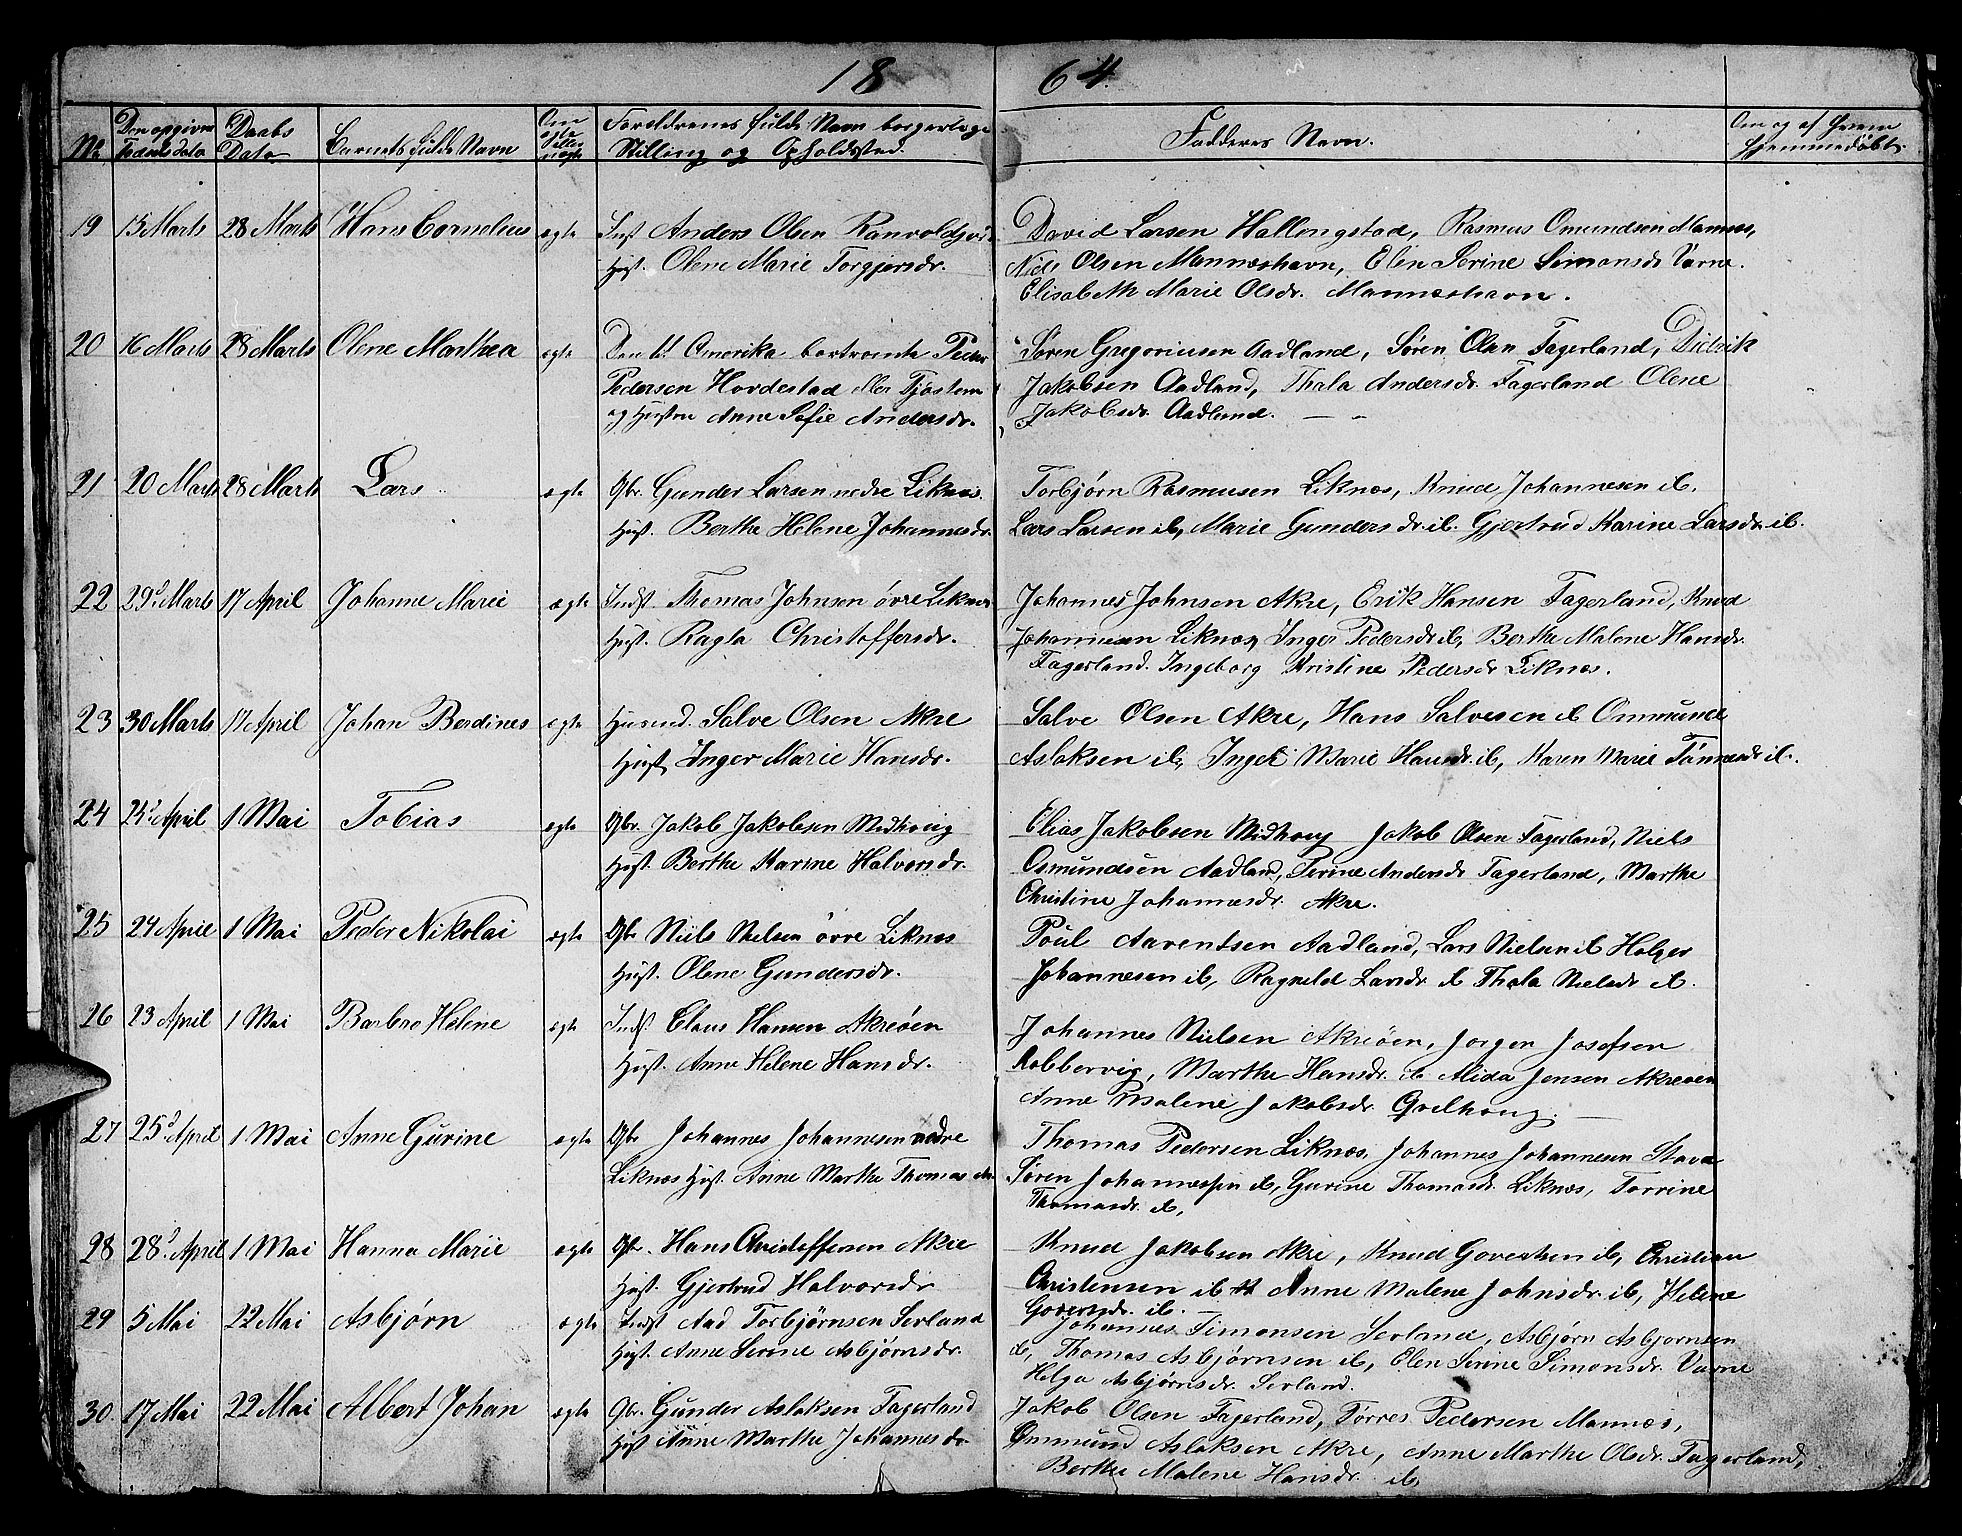 18 64.
No. Den opgivne Fødsels dato Daabs Dato Barnets fulde Navn Om ægte eller uægte Forældrenes fulde Navn borgerlige Stilling og Opholdssted. Faddernes Navn. Om og af hvem hjemmedøbt.
19 15 Marts 28 Marts Hans Cornelius ægte Inst Anders Olsen David Larsen Hallengstad, Rasmus Omundsen Mannes,
Hust. Olene Marie Torgjersdr. Niels Olsen Manneshavn, Elen Serine Simonsdr Varne.
Elisabeth Marie Olsdr. Manneshavn.
20 16 Marts 28 Marts Olene Marthea ægte Den til Amerika bortreiste Peder Søren Gregoriusen Aadland, Søren Olsen Fagerland, Didrik
Pedersen Hordestad eller Tjøstem Jakobsen Aadland, Thala Andersdr. Fagerland Olene
og Hustru Anne Sofie Andersdr. Jakobsdr. Aadland.
21 20 Marts 28 Marts Lars ægte Gbr. Gunder Larsen nedre Liknes. Torbjørn Rasmusen Liknes, Knud Johannesen ib.
Hust. Berthe Helene Johannesdr. Lars Larsen ib, Marie Gundersdr. ib. Gjertrud Karine Larsdr. ib.
22 29d. Marts 17 April Johanne Marie ægte Indst. Thomas Johnsen øvre Liknes Johannes Johnsen Akre, Erik Hansen Fagerland, Knud
Hust. Ragla Christoffersdr. Johannesen Liknes, Inger Pedersdr ib, Berthe Malene Hansdr.
Fagerland. Ingeborg Kristine Pedersdr Liknes.
23 30 Marts 17 April Johan Berdines ægte Husmd. Salve Olsen Akre Salve Olsen Akre, Hans Salvesen ib Ommund
Hust, Inger Marie Hansdr. Aslaksen ib, Marie Hansdr. ib, Karen Marie Tønnesdr ib.
24 April 1 Mai Tobias ægte Gbr. Jakob Jakobsen Midhoug Elias Jakobsen Midhoug Jakob Olsen Fagerland, Niels
Hust. Berthe Karine Halvorsdr. Osmundsen Aadland, Serine Andersdr Fagerland, Marthe
Christine Johannesdr. Akre.
25 24 April 1 Mai Peder Nikolai ægte Gbr Niels Nielsen øvre Liknes Poul Aarentsen Aadland, Lars Nielsen ib Holger
Hust. Olene Gundersdr. Johannesen ib, Ragnild Larsdr. ib Thala Nielsdr ib.
26 23 April 1 Mai Barbro Helene ægte Indst. Claus Hansen Akreøen Johannes Nielsen Akreøen, Jørgen Josefsen
Hust. Anne Helene Hansdr. Robbervig, Marthe Hansdr. ib Alida Jensen Akreøen
Anne Malene Jakobsdr. Qvelhoug.
27 25d. April 1 Mai Anne Gurine ægte Gbr Johannes Johannesen nedre Thomas Pedersen Liknes. Johannes Johannesen Stava
Liknes Hust. Anne Marthe Thomasdr. Søren Johannesen ib, Gurine Thomasdr. Liknes, Torrine
Thomasdr. ib,
28 28d. April 1 Mai Hanna Marie ægte Gbr. Hans Christoffersen Akre Knud Jakobsen Akre, Knud ib, Christian
Hust. Gjertrud Halvorsdr Christensen ib Anne Malene Johnsdr. ib, Helene
ib.
29 5 Mai 22 Mai Asbjørn ægte Indst Aad Torbjørnsen Sevland Johannes Simonsen Sevland, Asbjørn Asbjørnsen
Hust. Anne Serine Asbjørnsdr. ib, Thomas Asbjørnsen ib, Elen Serine Simonsdr. Varne
Helga Asbjørnsdr. Sevland.
30. 17 Mai 22 Mai Albert Johan ægte Gbr. Gunder Aslaksen Fagerland Jakob Olsen Fagerland, Tørres Pedersen Mannes,
Hust Anne Marthe Johannesdr. Ommund Aslaksen Akre, Anne Marthe Olsdr. Fagerland,
Berthe Malene Hansdr. ib,